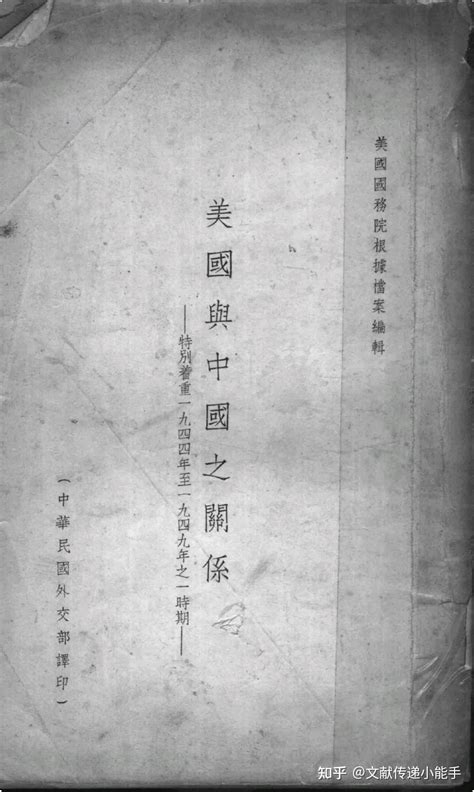 美國國務院根據檔案編輯
美國與中國之關係
——特別着重一九四四年至一九四九年之一時期——
（中華民國外交部譯印）
知乎 @文献传递小能手